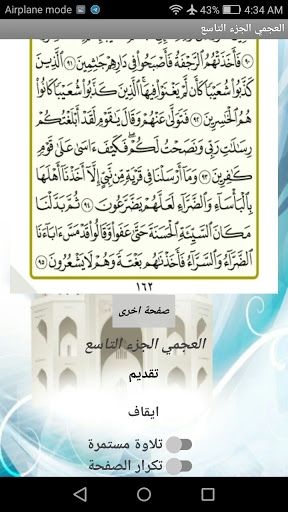 Airplane mode 43% 4:34 AM
العجمي الجزء التاسع
٩٠ فَأَخَذَتْهُمُ ٱلرَّجْفَةُ فَأَصْبَحُوا۟ فِى دَارِهِمْ جَٰثِمِينَ ٩١ ٱلَّذِينَ
كَذَّبُوا۟ شُعَيْبًا كَأَن لَّمْ يَغْنَوْا۟ فِيهَا ٱلَّذِينَ كَذَّبُوا۟ شُعَيْبًا كَانُوا۟
هُمُ ٱلْخَٰسِرِينَ ٩٢ فَتَوَلَّىٰ عَنْهُمْ وَقَالَ يَٰقَوْمِ لَقَدْ أَبْلَغْتُكُمْ
رِسَٰلَٰتِ رَبِّى وَنَصَحْتُ لَكُمْ فَكَيْفَ ءَاسَىٰ عَلَىٰ قَوْمٍ
كَٰفِرِينَ ٩٣ وَمَآ أَرْسَلْنَا فِى قَرْيَةٍ مِّن نَّبِىٍّ إِلَّآ أَخَذْنَآ أَهْلَهَا
بِٱلْبَأْسَآءِ وَٱلضَّرَّآءِ لَعَلَّهُمْ يَضَّرَّعُونَ ٩٤ ثُمَّ بَدَّلْنَا
مَكَانَ ٱلسَّيِّئَةِ ٱلْحَسَنَةَ حَتَّىٰ عَفَوا۟ وَّقَالُوا۟ قَدْ مَسَّ ءَابَآءَنَا
ٱلضَّرَّآءُ وَٱلسَّرَّآءُ فَأَخَذْنَٰهُم بَغْتَةً وَهُمْ لَا يَشْعُرُونَ ٩٥
١٦٢
صفحة اخرى
العجمي الجزء التاسع
تقديم
ايقاف
تلاوة مستمرة
تكرار الصفحة